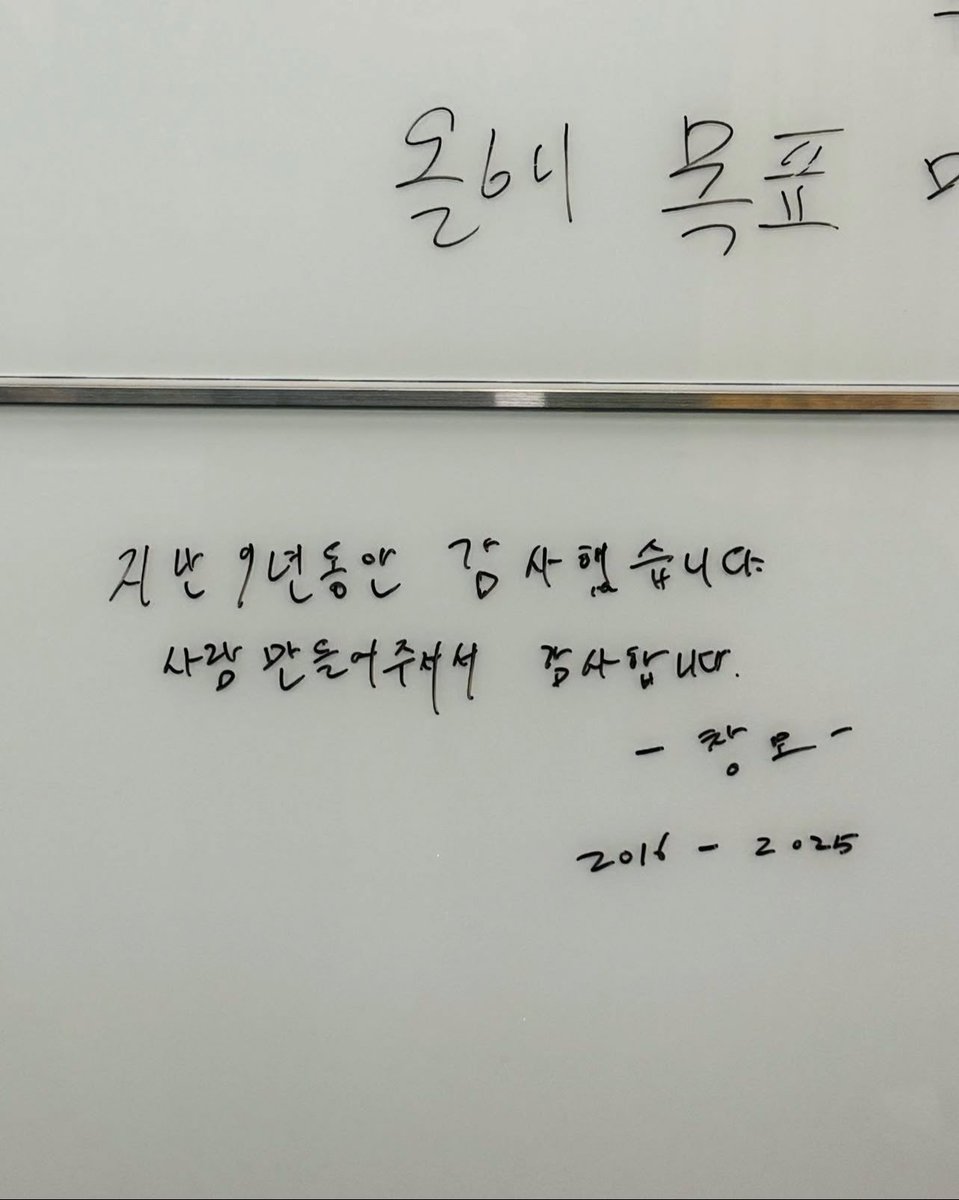 올해 목표
지난 9년동안 감사했습니다.
사람 만들어주셔서 감사합니다.
- 창모 -
2016 - 2025